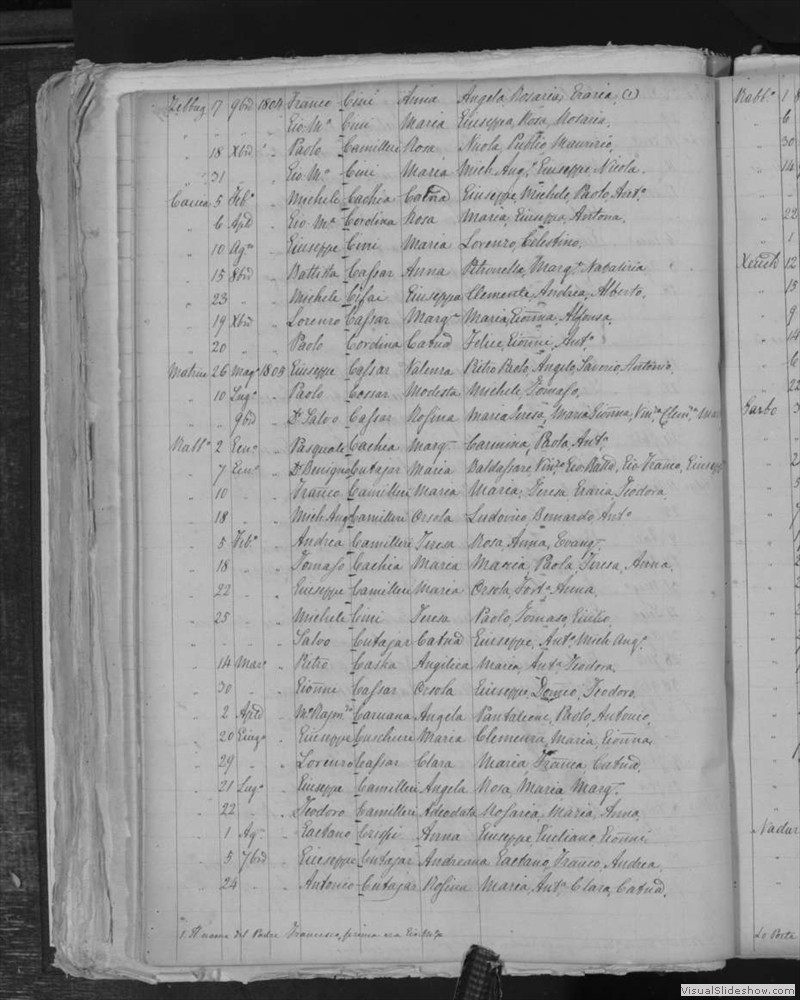 Zebbug 7 9brē 1804 Franco Cini Anna Angela Rosaria Grazia (1)
" " " " Gio Mª Cini Maria Giuseppa, Rosa, Rosaria,
" 18 Xbrē " Paolo Camilleri Rosa Nicola, Publio Maurizio,
" 31 " " Gio Mª Cini Maria Mich Angº Giuseppe, Nicola.
Caccia 5 Febº " Michele Cachia Catnā Giuseppe, Michele, Paolo, Antº
" 6 Aprē " Gio Mª Cordina Rosa Maria, Giuseppa, Antona.
" 10 Agº " Giuseppe Cini Maria Lorenzo, Celestino,
" 15 8brē " Battista Cassar Anna Petronella, Margª Natalizia
" 23 " " Michele Giuseppa Clemente, Andrea, Alberto,
" 19 Xbrē " Lorenzo Cassar Margª Maria, Gionna, Alfonsa,
" 20 " " Paolo Cordina Catnā Felice, Gionne, Antº
26 Magº 1805 Giuseppe Cassar Valenza Pietro Paolo, Angelo, Saverio, Antonio,
" 10 Lugº " Paolo Modesta Michele, Tomaso,
" " 9brē " Dr Salvo Cassar Rosina Maria Teresa, Maria Gionna, Vinzª Clemª Mar
Rabbº 2 Genº " Pasquale Cachia Margª Carmina, Paola, Antª
" 7 Genº " Dr Benigno Cutajar Maria Baldassare, Vinzº Gio Battā, Gio Franco, Giusepp
" 10 " " Franco Camilleri Maria Maria, Teresa, Grazia, Teodora
" 18 " " Mich Ang Camilleri Orsola Ludovico, Bernardo, Antº
" 5 Febº " Andrea Camilleri Teresa Rosa, Anna, Evangª
" 18 " " Tomaso Cachia Maria Maria, Paola, Teresa, Anna.
" 22 " " Giuseppe Camilleri Maria Orsola, Fortª Anna,
" 25 " " Michele Cini Teresa Paolo, Tomaso, Giulio
" " " " Salvo Cutajar Catnā Giuseppe, Antº Mich Angº
" 14 Marº " Pietro Casha Angelica Maria, Antª Teodora.
" 30 " " Gionne Cassar Orsola Giuseppe, Domco, Teodoro
" 2 Aprē " Caruana Angela Pantaleone, Paolo, Antonio,
" 20 Giugº " Giuseppe Cuschieri Maria Clemenza, Maria, Gionna,
" 29 " " Lorenzo Cassar Clara Maria, Franca, Catnā.
" 21 Lugº " Giuseppe Camilleri Angela Rosa, Maria, Margª
" 22 " " Teodoro Camilleri Adeodata Rosaria, Maria, Anna,
" 1 Agº " Gaetano Crispi Anna Giuseppe, Giuliano, Gionni
" 5 7brē " Giuseppe Cutajar Andreana Gaetano, Franco, Andrea
" 24 " " Antonio Cutajar Rosina Maria, Antª Clara, Catnā.
1. Il nome del Padre Francesco, prima era Gio Mª
Rabbº 1
" 6
" 30
" 14
" 22
" 1
Xeuch 12
" 15
" 9
" 14
" 6
" 22
Garbo 3
Nadur
Lo Porta
VisualSlideshow.com